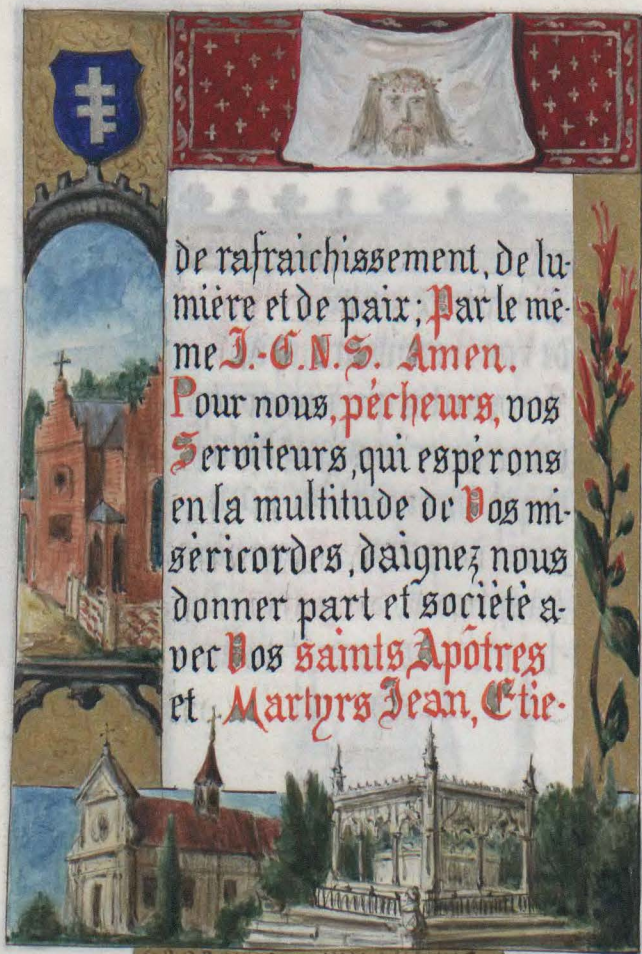 de rafraichissement, de lu-
mière et de paix; Par le mê-
me J.-C. N. S. Amen.
Pour nous, pécheurs, vos
Serviteurs, qui espérons
en la multitude de Vos mi-
séricordes, daignez nous
donner part et société a-
vec Vos saints Apôtres
et Martyrs Jean, Etie-